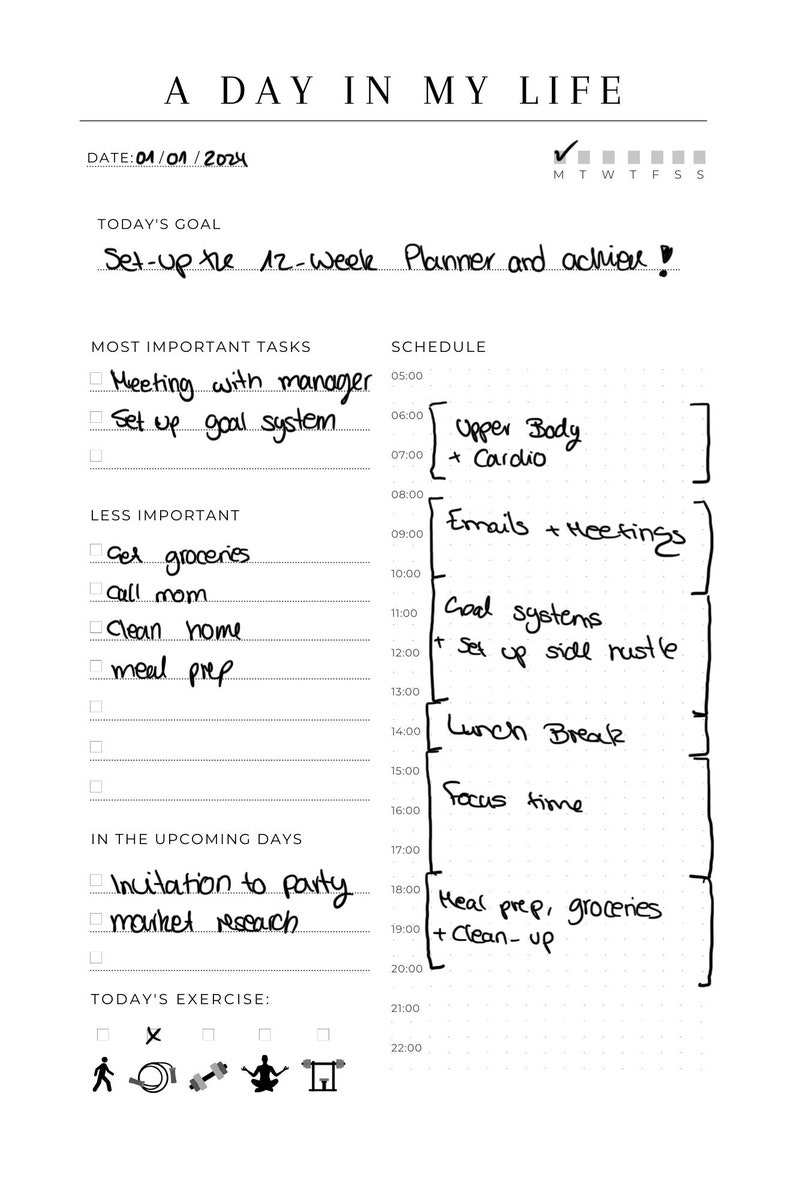 A DAY IN MY LIFE
DATE: 01 / 01 / 2024
M T W T F S S
TODAY'S GOAL
Set-up the 12-week Planner and achieve!
MOST IMPORTANT TASKS
Meeting with manager
Set up goal system
LESS IMPORTANT
Get groceries
Call mom
Clean home
meal prep
IN THE UPCOMING DAYS
Invitation to party
market research
TODAY'S EXERCISE:
SCHEDULE
05:00
06:00
Upper Body
07:00
+ Cardio
08:00
Emails + Meetings
09:00
10:00
Goal systems
11:00
+ Set up side hustle
12:00
13:00
14:00
Lunch Break
15:00
Focus time
16:00
17:00
18:00
Meal prep, groceries
19:00
+ Clean-up
20:00
21:00
22:00